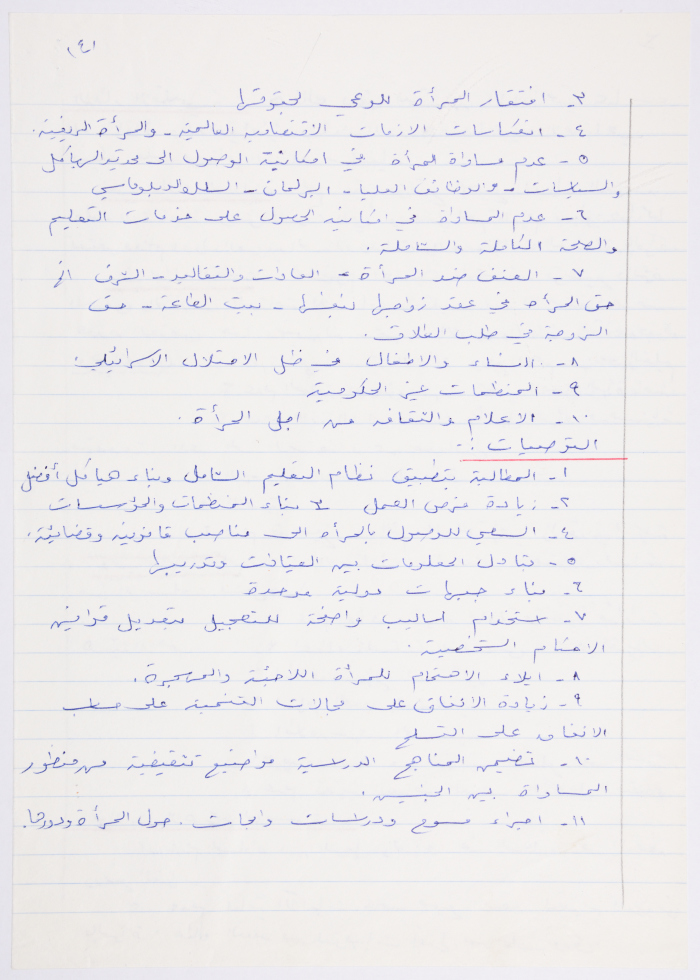 (٤)
٣- افتقار المرأة للوعي لحقوقها
٤- انعكاسات الازمات الاقتصاديه العالمية - والمرأة الريفية.
٥- عدم مساواة المرأة في امكانية الوصول الى الهياكل
والسياسات - والوظائف العليا - البرلمان - السلك الدبلوماسي
٦- عدم المساواة في امكانية الحصول على خدمات التعليم
والصحة الكاملة والشاملة.
٧- العنف ضد المرأة - العادات والتقاليد - الشرف الخ
حق المرأه في عقد زواجها لنفسها - بيت الطاعة - حق
الزوجة في طلب الطلاق.
٨- النساء والاطفال في ظل الاحتلال الاسرائيلي.
٩- المنظمات غير الحكومية
١٠- الاعلام والثقافه من اجل المرأة.
التوصيات :-
١- المطالبة بتطبيق نظام التعليم الشامل وبناء هياكل أفضل
٢- زيادة فرص العمل ٣ بناء المنظمات والمؤسسات
٤- السعي للوصول بالمرأه الى مناصب قانونيه وقضائية.
٥- تبادل المعلومات بين وتدريبها
٦- بناء جبهات دولية موحدة
٧- استخدام اساليب واضحة للتعجيل بتعديل قوانين
الاحكام الشخصية.
٨- ايلاء الاهتمام للمرأة اللاجئة والمهجرة.
٩- زيادة الانفاق على مجالات التنمية على حساب
الانفاق على التسلح
١٠- تضمين المناهج الدراسية مواضيع تثقيفية من منظور
المساواة بين الجنسين.
١١- اجراء مسوح ودراسات وابحاث. حول المرأة ودورها.